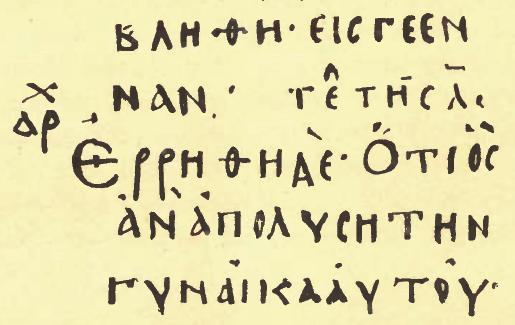 ΒΛΗΘΗ· ΕΙϹ ΓΕΕΝ
ΝΑΝ. ΤΕ̂ ΤΗϹ Λ̄.
ΑΡΧ
ἘΡΡΗΘΗ ΔῈ· ὍΤΙ ὉϹ
ἈΝ ἈΠΟΛΥϹΗ ΤΗΝ
ΓΥΝΑΙΚΑ ΑΥΤΟΥ·